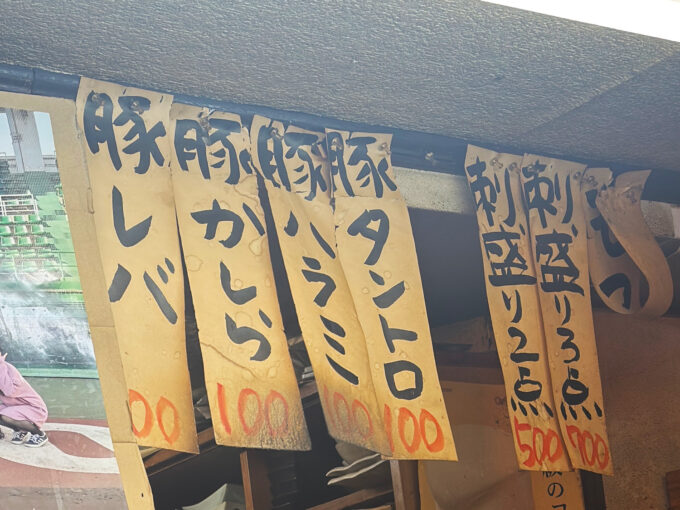 豚レバ
00
豚かしら
100
豚ハラミ
100
豚タントロ
100
刺盛り2点
500
刺盛り3点
700
もつ